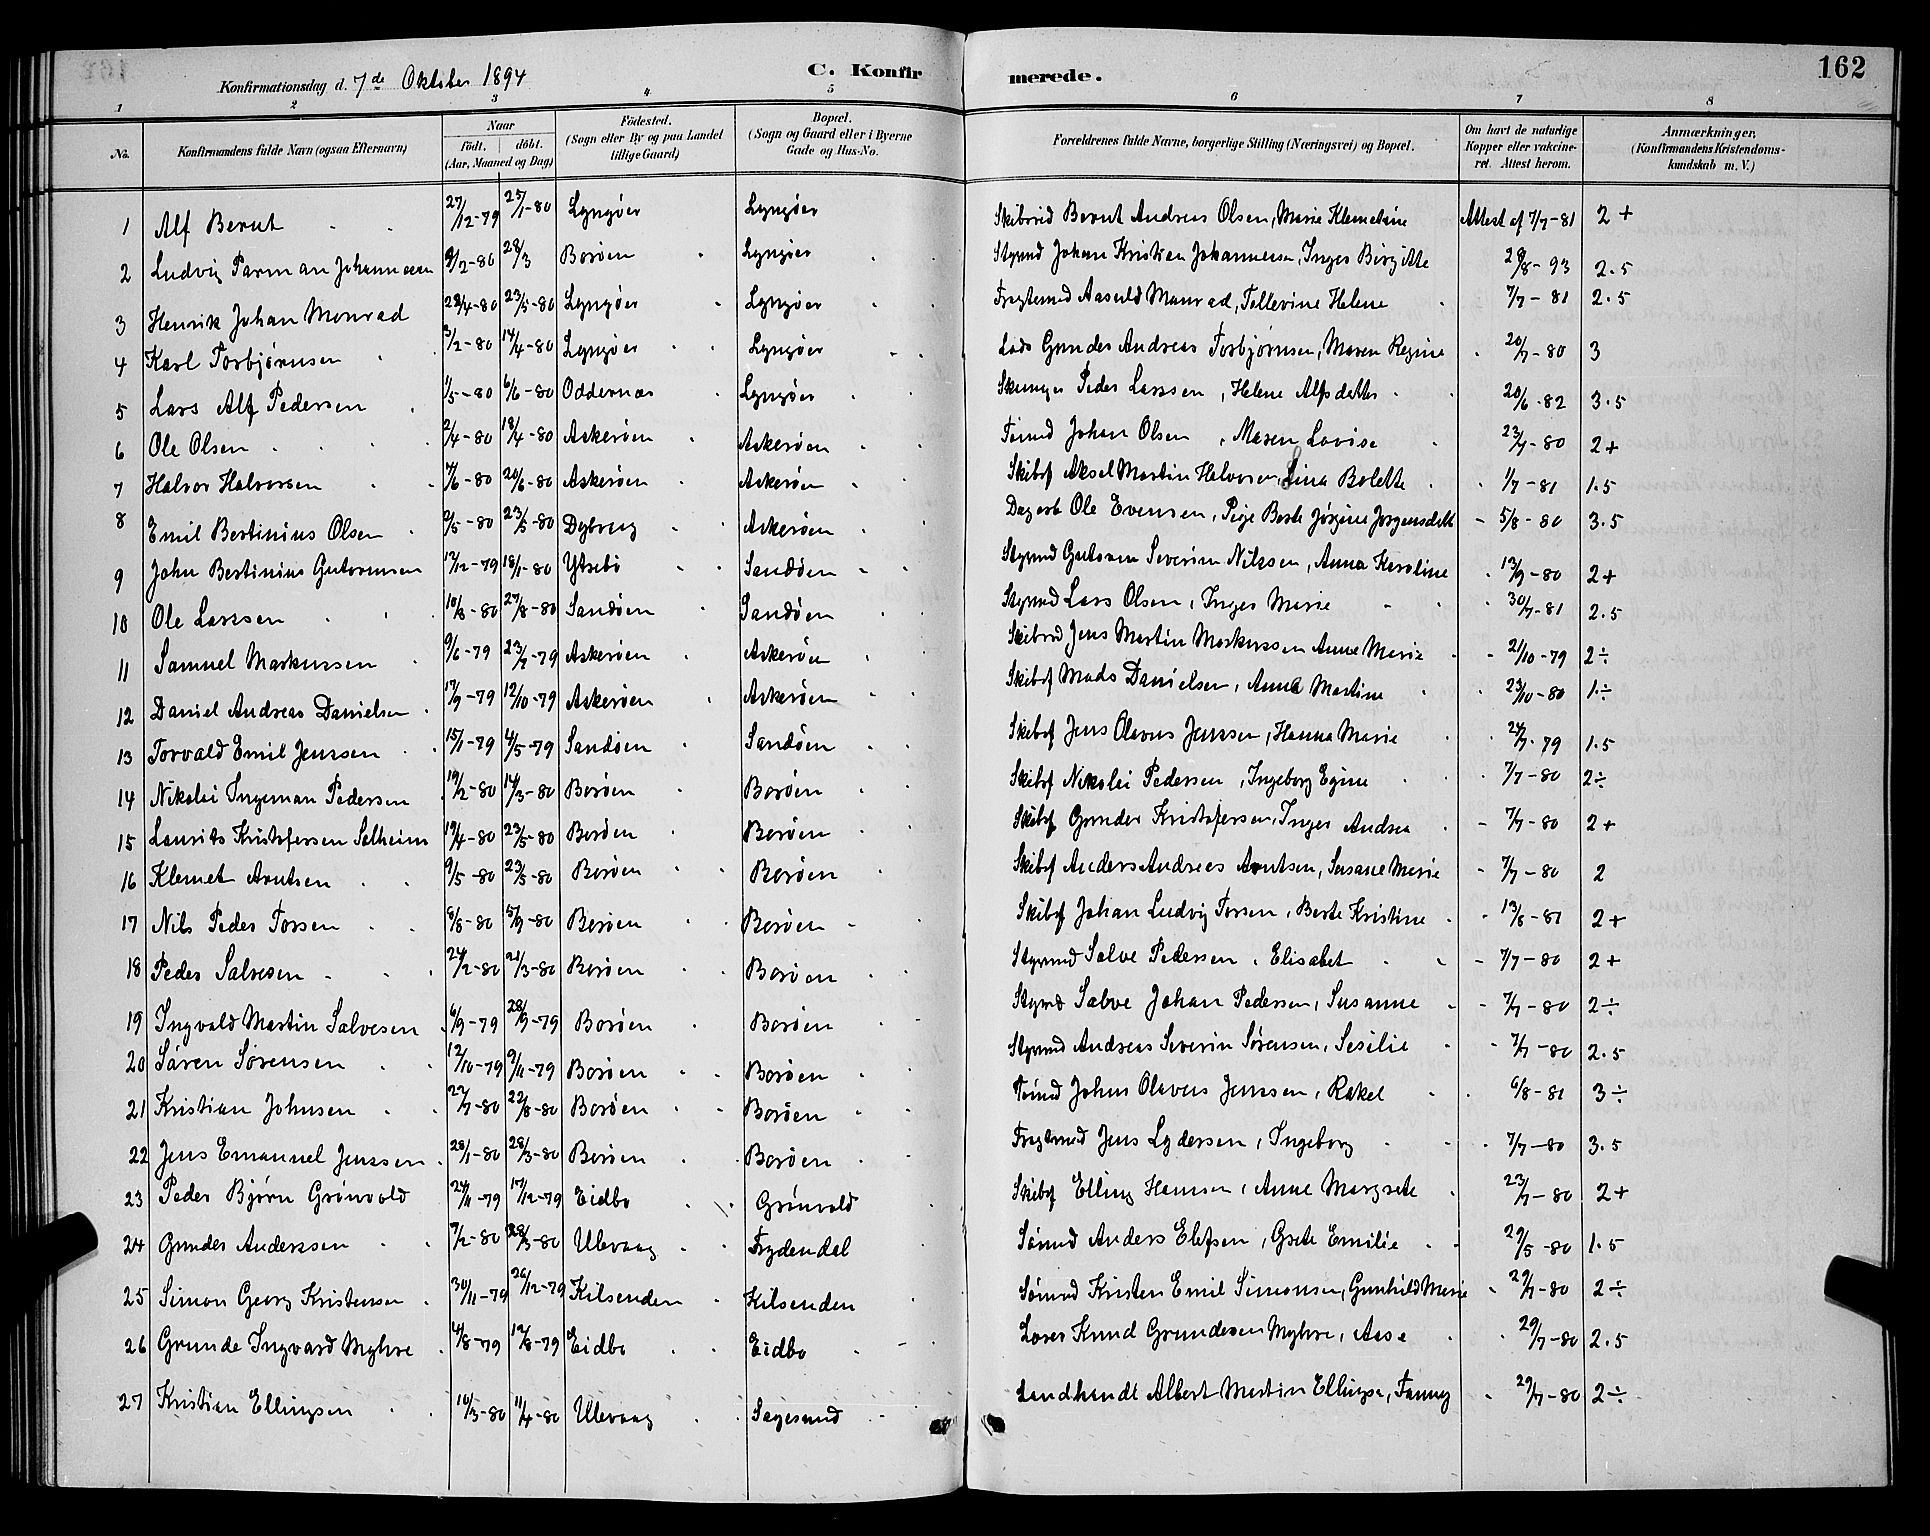 Konfirmationsdag d. 7de Oktober 1894 C. Konfirmerede. 162
1 2 3 4 5 6 7 8
No. Konfirmandens fulde Navn (ogsaa Efternavn) Naar födt. döbt. (Aar, Maaned og Dag) Födested. (Sogn eller By og paa Landet tillige Gaard) Bopæl. (Sogn og Gaard eller i Byerne Gade og Hus-No. Forældrenes fulde Navne, borgerlige Stilling (Næringsvei) og Bopæl. Om havt de naturlige Kopper eller vakcineret. Attest herom. Anmærkninger, (Konfirmandens Kristendomskundskab m. V.)
1 Alf Bernt 27/12-79 25/1-80 Lyngöer Lyngöer Skibsrid Bernt Andreas Olsen, Marie Klemetsine Attest af 7/7-81 2+
2 Ludvig Parman Johannesen 9/2-80 28/3 Boröen Lyngöer Styrmd Johan Kristian Johannesen, Inger Birgitte 28/8-93 2.5
3 Henrik Johan Monrad 22/4-80 23/5-80 Lyngöer Lyngöer Fragtemd Aasuld Monrad, Tellevine Helene 7/7-81 2.5
4 Karl Torbjörnsen 3/2-80 14/4-80 Lyngöer Lyngöer Lods Gunder Andreas Torbjörnsen, Maren Regine 20/7-80 3
5 Lars Alf Pedersen 1/5-80 6/6-80 Oddernæs Lyngöer Peder Larssen, Helene Alfsdatter 20/6-82 3.5
6 Ole Olsen 2/4-80 18/4-80 Askeröen Askeröen Tömmd Johan Olsen, Maren Lovise 23/7-80 2+
7 Halvor Halvorsen 7/6-80 20/6-80 Askeröen Askeröen Skibsf Aksel Martin Halvorsen, Lina Bolette 1/7-81 1.5
8 Emil Bertinius Olsen 9/5-80 23/5-80 Dybvaag Askeröen Dagarb Ole Evensen, Pige Berte Jörgine Jörgensdatt 5/8-80 3.5
9 John Bertinius Gutormsen 13/12-79 18/1-80 Ytrebö Sandöen Styrmd Gutorm Severin Nilssen, Anna Karoline 13/9-80 2+
10 Ole Larssen 10/8-80 27/8-80 Sandöen Sandöen Styrmd Lars Olsen, Inger Marie 30/7-81 2.5
11 Samuel Markussen 9/6-79 23/7-79 Askeröen Askeröen Jens Martin Markussen Anne Marie 21/10-79 2÷
12 Daniel Andreas Danielsen 17/9-79 12/10-79 Askeröen Askeröen Skibsf Mads Danielsen, Anna Martine 23/10-80 1.÷
13 Torvald Emil Jenssen 15/1-79 4/5-79 Sandöen Sandöen Skibsf Jens Olavus Jenssen, Hanna Marie 24/7-79 1.5
14 Nikolai Ingeman Pedersen 19/2-80 14/3-80 Boröen Boröen Skibsf Nikolai Pedersen, Ingeborg Egine 7/7-80 2÷
15 Laurits Kristofersen Solheim 19/4-80 23/5-80 Boröen Boröen Skibsf Gunder Kristofersen, Inger Andrea 7/7-80 2+
16 Klemet Arntsen 9/5-80 23/5-80 Boröen Boröen Skibsf Anders Andreas Arntsen, Susane Marie 7/7-80 2
17 Nils Peder Torsen 8/8-80 5/9-80 Boröen Boröen Skibsf Johan Ludvig Torsen, Berte Kristine 13/8-81 2+
18 Peder Salvesen 24/2-80 21/3-80 Boröen Boröen Styrmd Salve Pedersen, Elisabet 7/7-80 2+
19 Ingvald Martin Salvesen 6/9-79 28/9-79 Boröen Boröen Styrmd Salve Johan Pedersen, Susanne 7/7-80 2÷
20 Sören Sörensen 12/10-79 9/11-79 Boröen Boröen Styrmd Andreas Severin Sörensen, Sesilie 7/7-80 2.5
21 Kristian Johnsen 27/7-80 22/8-80 Boröen Boröen Tömmd John Olavus Jenssen, Rakel 6/8-81 3÷
22 Jens Emanuel Jenssen 28/1-80 28/3-80 Boröen Boröen Fragtemd Jens Lydersen, Ingeborg 7/7-80 3.5
23 Peder Björn Grönvold 24/11-79 17/12-79 Eidbo Grönvold Skibsf Elling Hansen, Anne Margrete 23/7-80 2+
24 Gunder Anderssen 7/2-80 28/3-80 Ulevaag Frydendal Sömmd Anders Elefsen, Grete Emilie 29/5-80 1.5
25 Simon Georg Kristensen 30/11-79 26/12-79 Kilsenden Kilsenden Sömmd Kristen Emil Simonsen, Gunhild Marie 29/7-80 2÷
26 Grunde Ingvard Myhre 4/8-79 17/8-79 Eidbo Eidbo Knud Grundesen Myhre, Aase 29/7-80 2.5
27 Kristian Ellingsen 10/3-80 11/4-80 Ulevaag Sagesund Landhandl Albert Martin Ellingse, Fanny 29/7-80 2÷